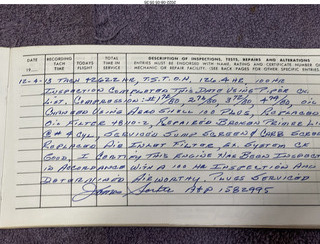 DATE
19
RECORDING TACH TIME
TODAY'S FLIGHT
TOTAL TIME IN SERVICE
DESCRIPTION OF INSPECTIONS, TESTS, REPAIRS AND ALTERATIONS
ENTRIES MUST BE ENDORSED WITH NAME, RATING AND CERTIFICATE NUMBER OF
MECHANIC OR REPAIR FACILITY. (SEE BACK PAGES FOR OTHER SPECIFIC ENTRIES)
HR, 100 HR
INSPECTION COMPLETED THIS DATE USING
LIST. COMPRESSION 80, 80, 80, 80, OIL
CHANGED USING AERO SHELL 100 PLUS, REPLACED
OIL FILTER REPAIRED BROKEN PRIMER LI
@ #4 CYL, SERVICED SUMP SCREEN / CARB SCREE
REPLACED AIR INLET FILTER, SYSTEM CK
GOOD, I CERTIFY THIS ENGINE HAS BEEN INSPECT
IN ACCORDANCE WITH A 100 HR INSPECTION AND
DETERMINED AIRWORTHY. PLUGS SERVICED
James A&P 1582995